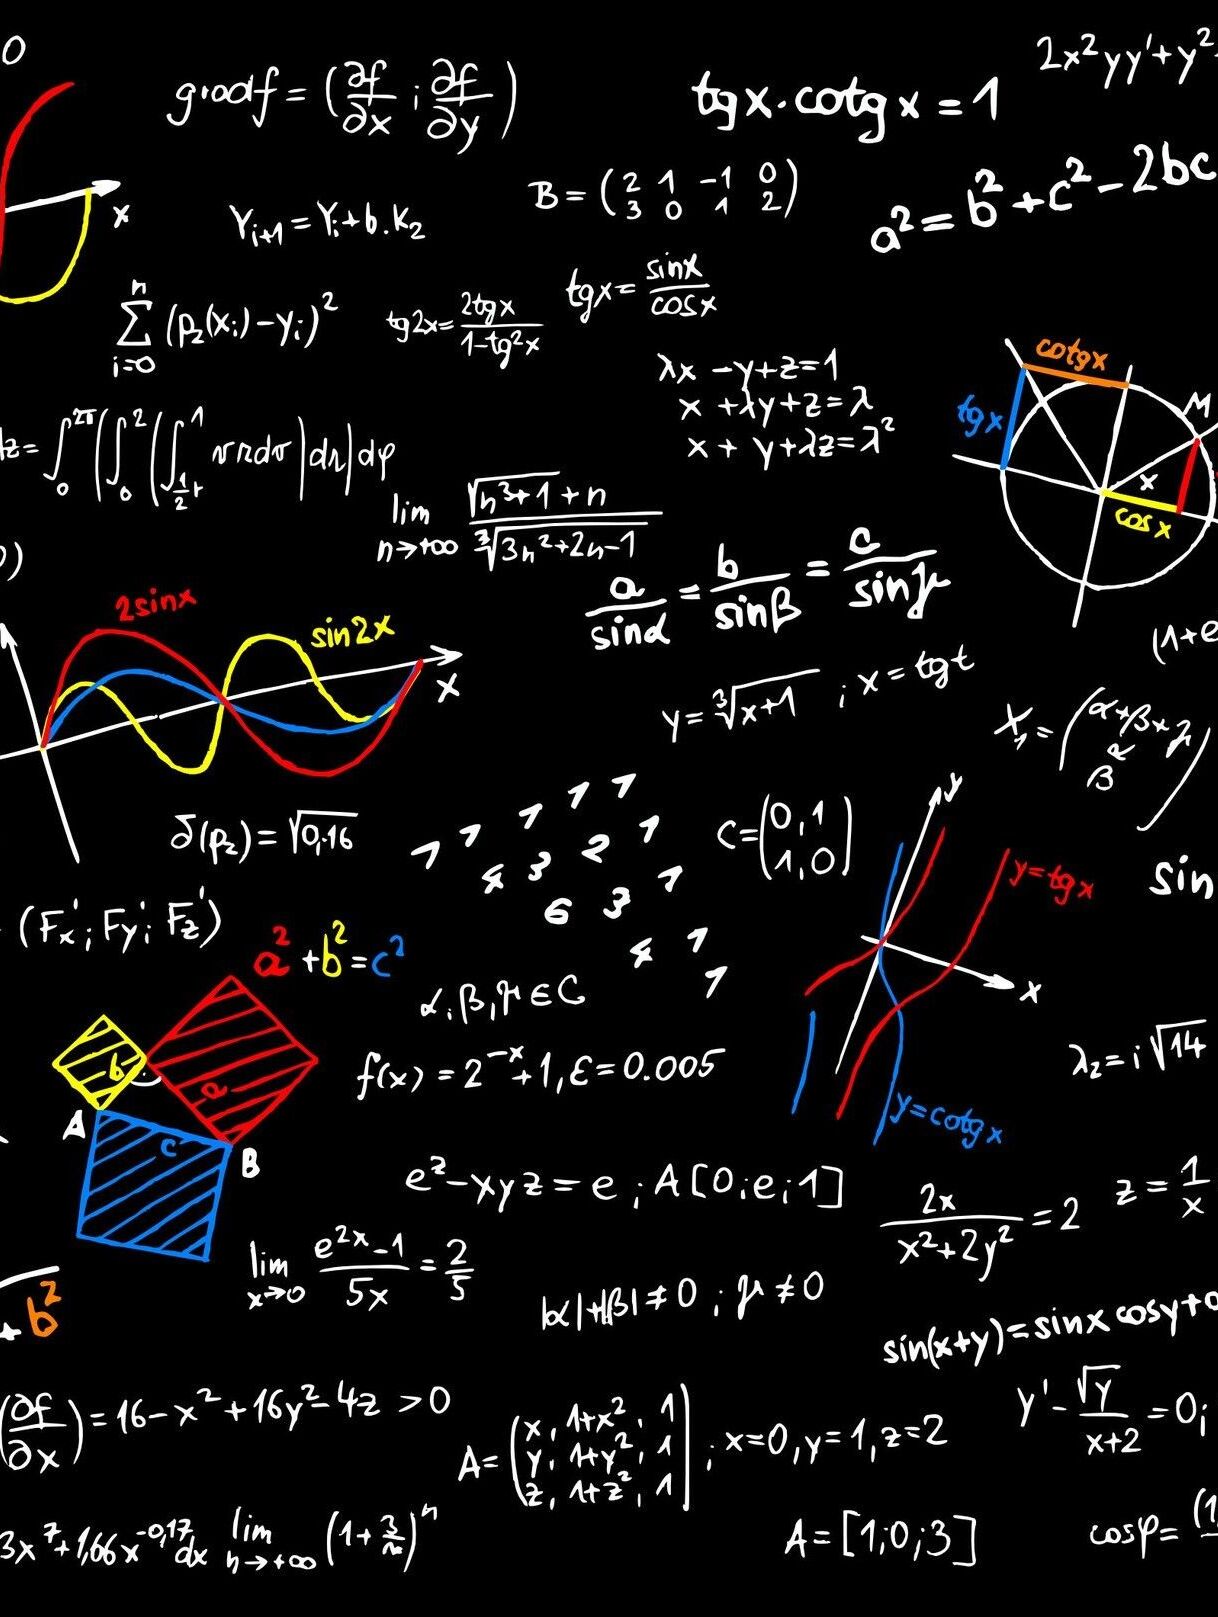 0
grad f = (∂f/∂x ; ∂f/∂y)
tgx·cotgx = 1
2x²yy'+y²
B = (2 1 -1 0
3 0 1 2)
a² = b²+c²-2bc
x
Yᵢ₊₁ = Yᵢ+b.K₂
n
∑ (p₂(xᵢ)-yᵢ)²
i=0
tg2x = 2tgx/1-tg²x
tgx = sinx/cosx
λx -y+z=1
x +λy+z=λ
x + y+λz=λ²
cotgx
tgx
M
x
cosx
lim n→+∞ √n³+1 + n / ∛3n²+2n-1
a/sinα = b/sinβ = c/sinγ
2sinx
sin2x
x
y = ∛x+1 ; x = tgt
(1+e
X₁ = (α+β+γ
β
δ(p₂) = √0,16
1 1 1 1 1
4 3 2 1
6 3 1
4 1
1
C = (0,1
1,0)
y
y=tgx
sin
x
y=cotgx
(Fx'; Fy'; Fz')
a²+b²=c²
b
a
c
A
B
α,β,γ∈C
f(x) = 2⁻ˣ+1, ε = 0.005
λ₂ = i√14
eᶻ-xyz = e ; A[0;e;1]
2x/x²+2y² = 2
z = 1/x
lim x→0 e²ˣ-1/5x = 2/5
|α|+|β| ≠ 0 ; γ ≠ 0
+ b²
sin(x+y) = sinx cosy+
(∂f/∂x) = 16-x²+16y²-4z > 0
A = (x, 1+x², 1
y, 1+y², 1
z, 1+z², 1) ; x=0, y=1, z=2
y' - √y/x+2 = 0;
3x⁷+1,66x⁻⁰,¹⁷dx
lim n→+∞ (1+3/n)ⁿ
A = [1;0;3]
cosφ = (1